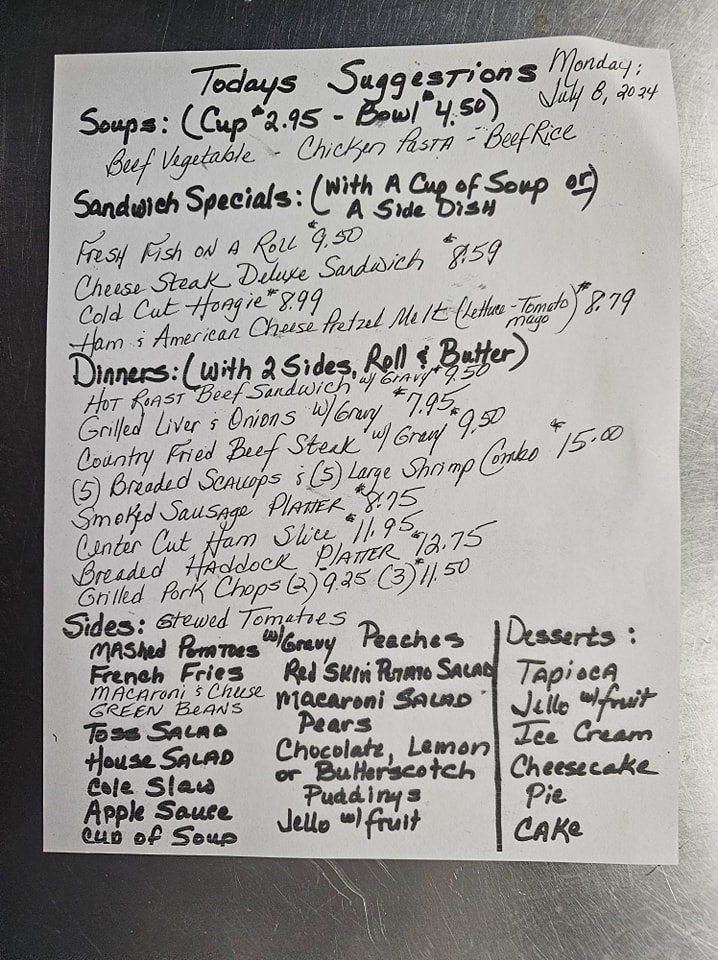 Todays Suggestions Monday:
July 8, 2024
Soups: (Cup $2.95 - Bowl $4.50)
Beef Vegetable - Chicken Pasta - Beef Rice
Sandwich Specials: (With A Cup of Soup or)
A Side Dish
Fresh Fish on A Roll $9.50
Cheese Steak Deluxe Sandwich $8.59
Cold Cut Hoagie $8.99
Ham & American Cheese Pretzel Melt (Lettuce - Tomato mayo) $8.79
Dinners: (With 2 Sides, Roll & Butter)
Hot Roast Beef Sandwich w/ Gravy $9.50
Grilled Liver & Onions w/ Gravy $7.95
Country Fried Beef Steak w/ Gravy $9.50
(5) Breaded Scallops & (5) Large Shrimp Combo $15.00
Smoked Sausage Platter $8.75
Center Cut Ham Slice $11.95
Breaded Haddock Platter $12.75
Grilled Pork Chops (2) 9.25 (3) $11.50
Sides: Stewed Tomatoes
Mashed Potatoes w/ Gravy
French Fries
Macaroni & Chese
Green Beans
Toss Salad
House Salad
Cole Slaw
Apple Sauce
Cup of Soup
Peaches
Red Skin Potato Salad
Macaroni Salad
Pears
Chocolate, Lemon
or Butterscotch
Puddings
Jello w/ fruit
Desserts:
Tapioca
Jello w/ fruit
Ice Cream
Cheesecake
Pie
Cake